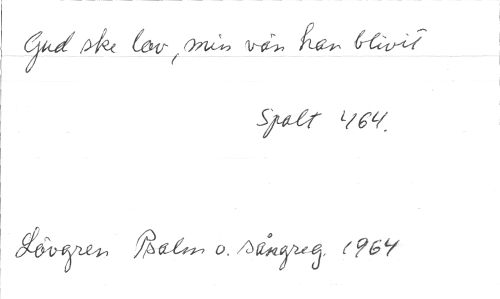 Gud ske lov, min vän han blivit
Spalt 464.
Lövgren Psalm o. sångreg. 1964